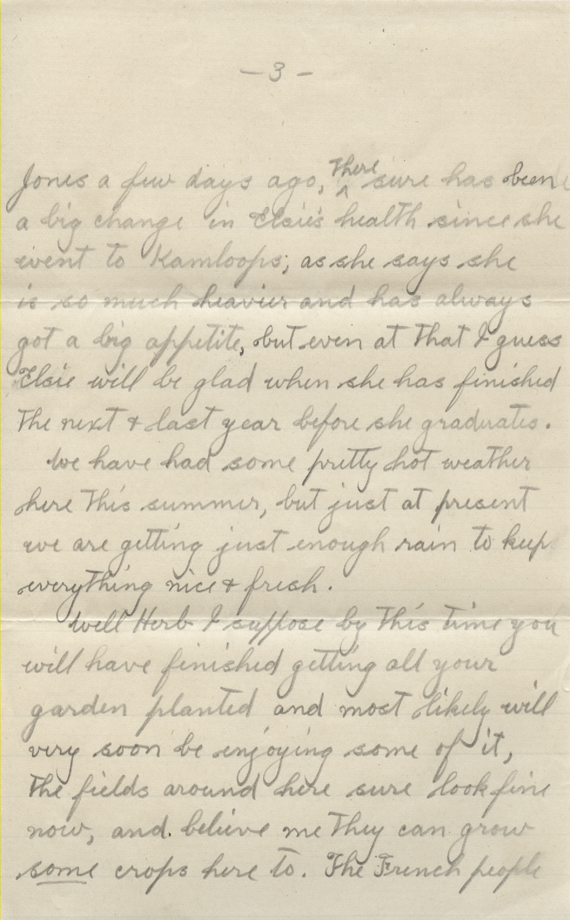 - 3 -
Jones a few days ago, There sure has been
a big change in Elsie's health since she
went to Kamloops; as she says she
is so much heavier and has always
got a big appetite, but even at that I guess
Elsie will be glad when she has finished
the next & last year before she graduates.
We have had some pretty hot weather
here this summer, but just at present
we are getting just enough rain to keep
everything nice & fresh.
Well Herb I suppose by this time you
will have finished getting all your
garden planted and most likely will
very soon be enjoying some of it,
the fields around here sure look fine
now, and. believe me they can grow
some crops here to. The French people